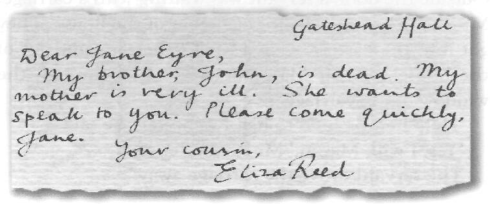 Gateshead Hall
Dear Jane Eyre,
My brother, John, is dead. My
mother is very ill. She wants to
speak to you. Please come quickly,
Jane.
Your cousin,
Eliza Reed